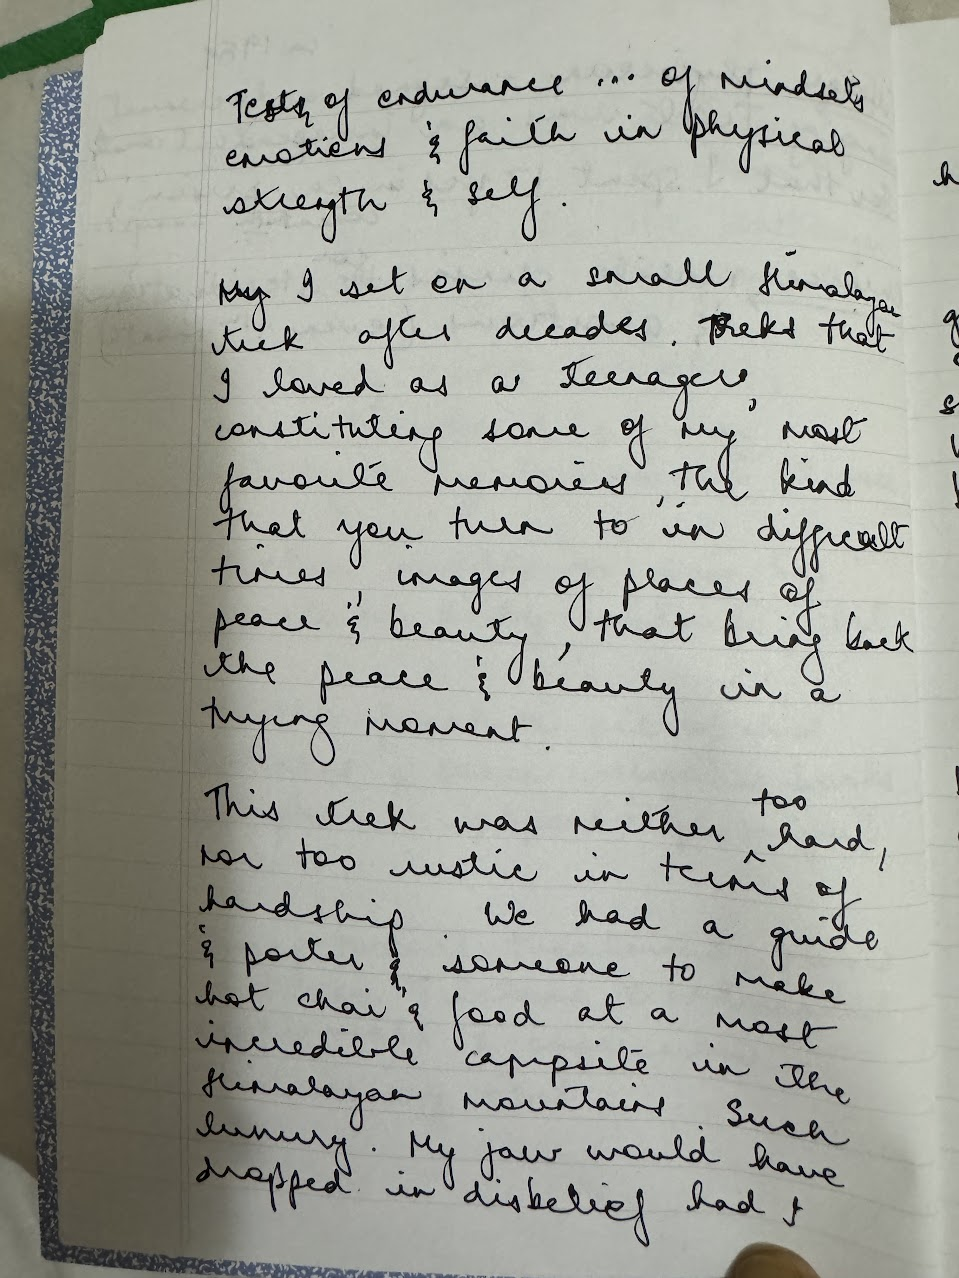 Tests of endurance ... of mindsets
emotions & faith in physical
strength & self.
I set on a small Himalayan
trek after decades. Treks that
I loved as a teenager,
constituting some of my most
favourite memories, the kind
that you turn to in difficult
times, images of places of
peace & beauty, that bring back
the peace & beauty in a
trying moment.
This trek was neither too hard,
nor too rustic in terms of
hardship. We had a guide
& porter & someone to make
hot chai & food at a most
incredible campsite in the
Himalayan mountains. Such
luxury. My jaw would have
dropped in disbelief had I
h
g
s